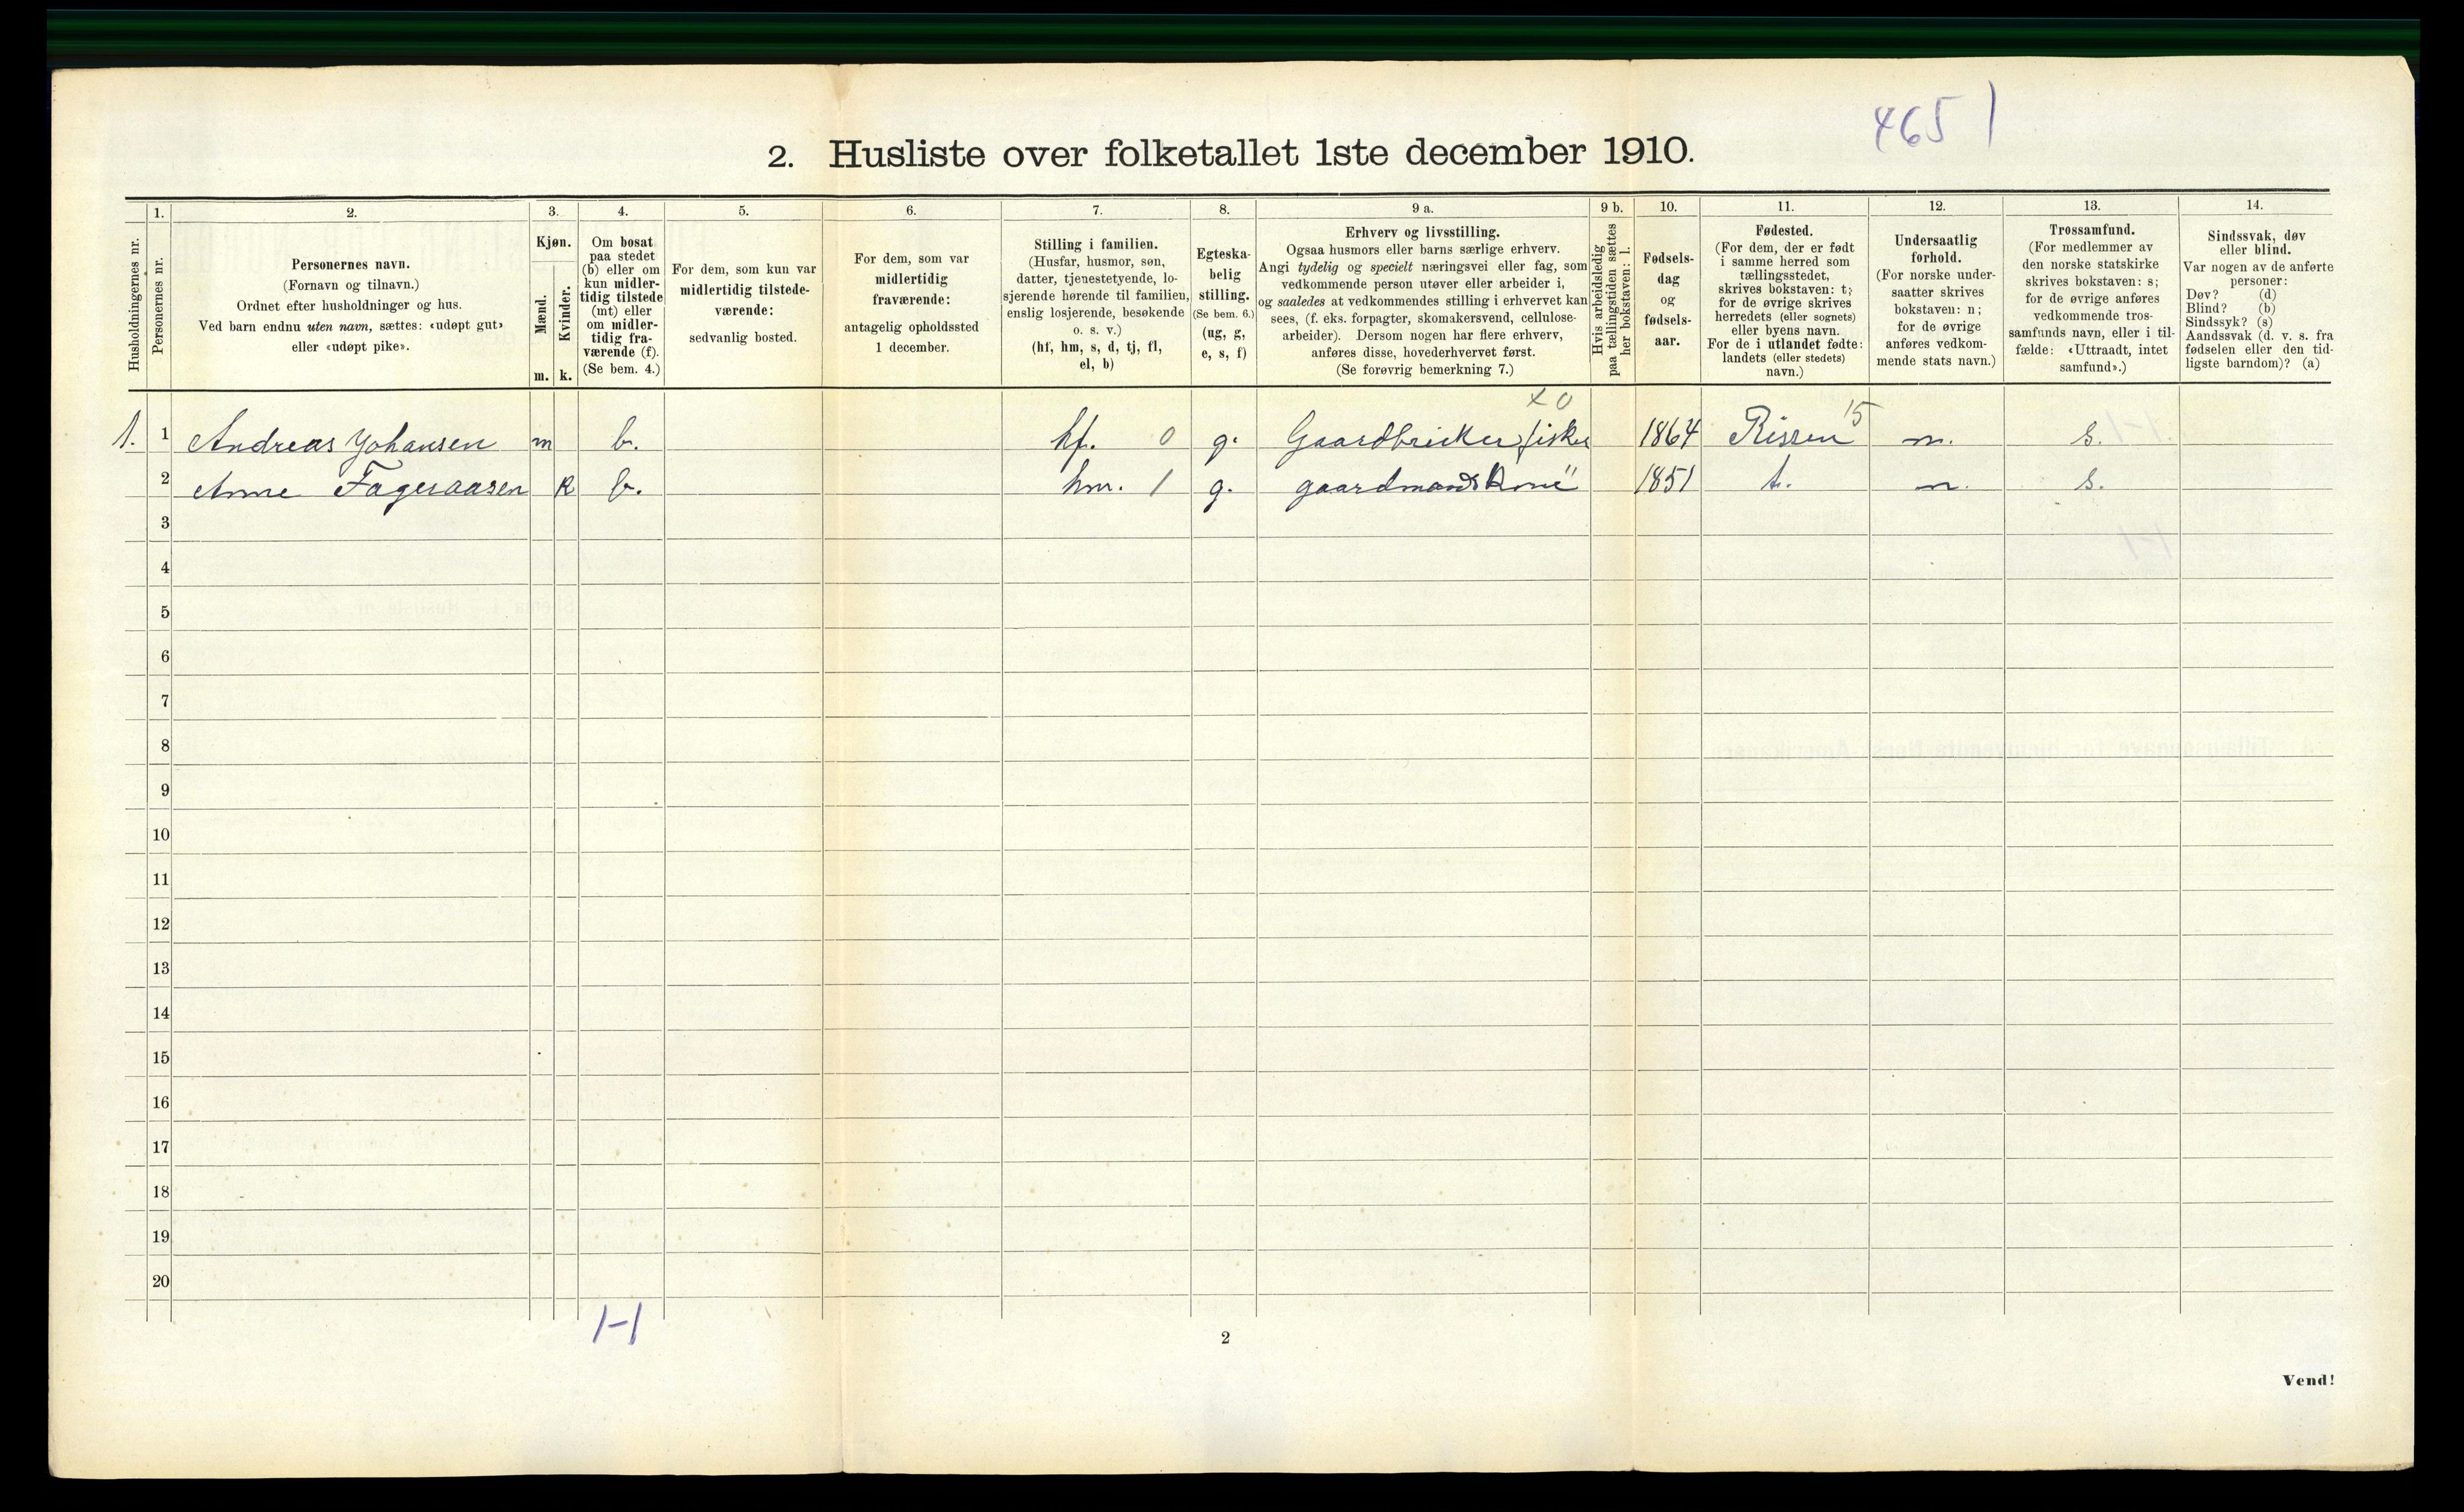 465 1
2. Husliste over folketallet 1ste december 1910.
1. 2. 3. 4. 5. 6. 7. 8. 9 a. 9 b. 10. 11. 12. 13. 14.
Husholdningernes nr.
Personernes nr.
Personernes navn.
(Fornavn og tilnavn.)
Ordnet efter husholdninger og hus.
Ved barn endnu uten navn, sættes: «udøpt gut»
eller «udøpt pike».
Kjøn.
Mænd.
Kvinder.
m. k.
Om bosat
paa stedet
(b) eller om
kun midler-
tidig tilstede
(mt) eller
om midler-
tidig fra-
værende (f).
(Se bem. 4.)
For dem, som kun var
midlertidig tilstede-
værende:
sedvanlig bosted.
For dem, som var
midlertidig
fraværende:
antagelig opholdssted
1 december.
Stilling i familien.
(Husfar, husmor, søn,
datter, tjenestetyende, lo-
sjerende hørende til familien,
enslig losjerende, besøkende
o. s. v.)
(hf, hm, s, d, tj, fl,
el, b)
Egteska-
belig
stilling.
(Se bem. 6.)
(ug, g,
e, s, f)
Erhverv og livsstilling.
Ogsaa husmors eller barns særlige erhverv.
Angi tydelig og specielt næringsvei eller fag, som
vedkommende person utøver eller arbeider i,
og saaledes at vedkommendes stilling i erhvervet kan
sees, (f. eks. forpagter, skomakersvend, cellulose-
arbeider). Dersom nogen har flere erhverv,
anføres disse, hovederhvervet først.
(Se forøvrig bemerkning 7.)
Hvis arbeidsledig
paa tællingstiden sættes
her bokstaven: l.
Fødsels-
dag
og
fødsels-
aar.
Fødested.
(For dem, der er født
i samme herred som
tællingsstedet,
skrives bokstaven: t;
for de øvrige skrives
herredets (eller sognets)
eller byens navn.
For de i utlandet fødte:
landets (eller stedets)
navn.)
Undersaatlig
forhold.
(For norske under-
saatter skrives
bokstaven: n;
for de øvrige
anføres vedkom-
mende stats navn.)
Trossamfund.
(For medlemmer av
den norske statskirke
skrives bokstaven: s;
for de øvrige anføres
vedkommende tros-
samfunds navn, eller i til-
fælde: «Uttraadt, intet
samfund».)
Sindssvak, døv
eller blind.
Var nogen av de anførte
personer:
Døv? (d)
Blind? (b)
Sindssyk? (s)
Aandssvak (d. v. s. fra
fødselen eller den tid-
ligste barndom)? (a)
x 0
1. 1 Andreas Johansen m b. hf. 0 g. Gaardbruker, fisker 1864 Rissen 15 n. s.
2 Anne Fageraasen k b. hm. 1 g. gaardmandskone " 1851 t. n. s.
3
4
5
6
7
8
9
10
11
12
13
14
15
16
17
18
19
20
1-1
2
Vend!